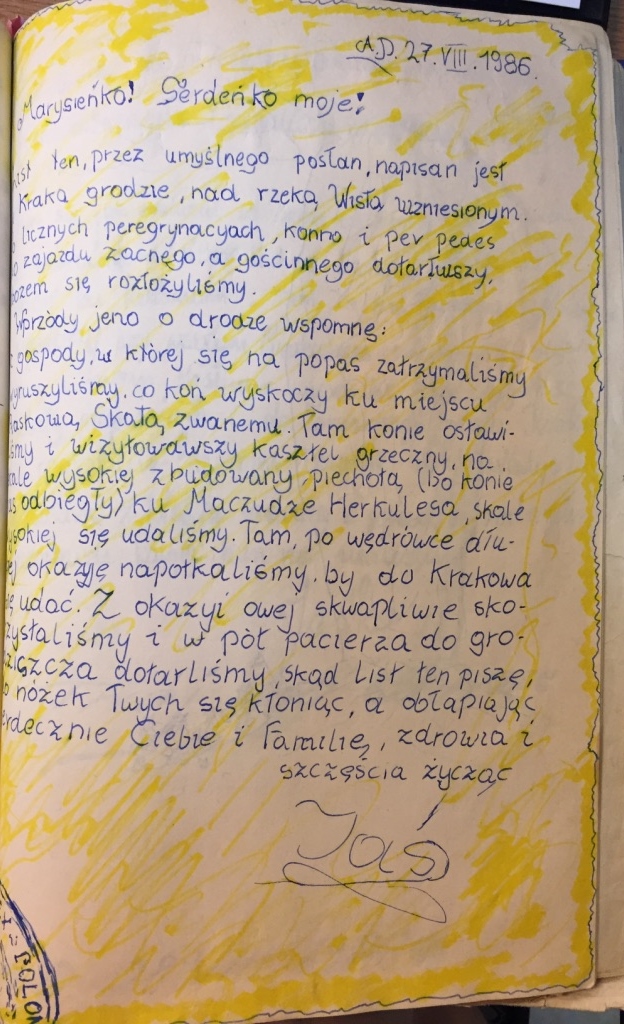 A.D. 27.VIII.1986.
Marysieńko! Serdeńko moje!
ist ten, przez umyślnego posłan, napisan jest
Kraka grodzie, nad rzeką Wisłą wzniesionym.
licznych peregrynacyach, konno i per pedes
o zajazdu zacnego, a gościnnego dotarłwszy,
bozem się rozłożyliśmy.
Wprzódy jeno o drodze wspomnę:
gospody, w której się na popas zatrzymaliśmy
yruszyliśmy, co koń wyskoczy ku miejscu
askową Skałą zwanemu. Tam konie ostawi-
śmy i wizytowawszy kasztel grzeczny, na
kale wysokiej zbudowany, piechotą (bo konie
as odbiegły) ku Maczudze Herkulesa, skale
ysokiej się udaliśmy. Tam, po wędrówce dłu-
ej okazyję napotkaliśmy, by do Krakowa
ię udać. Z okazyi owej skwapliwie sko-
zystaliśmy i w pół pacierza do gro-
ziszcza dotarliśmy, skąd list ten piszę,
o nóżek Twych się kłoniąc, a obłapiając
erdecznie Ciebie i Familię, zdrowia i
szczęścia życząc
Jaś